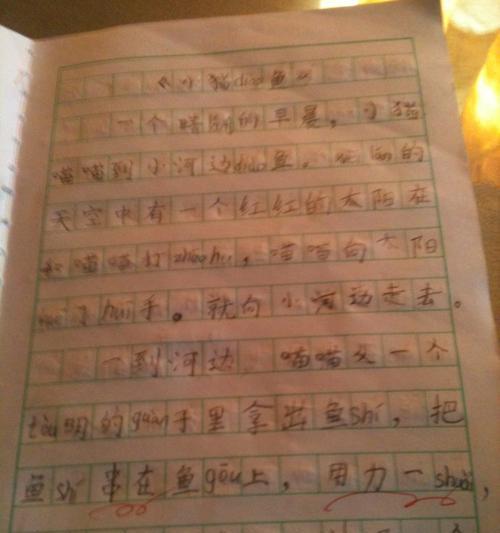 《小猫diào鱼》
一个晴朗的早晨，小猫
喵喵到小河边diào鱼。 的
天空中有一个红红的太阳在
和喵喵打zhāohu，喵喵向太阳
了huī手。就向小河边走去。
一到河边 喵喵从一个
tòu明的guàn子里拿出鱼shí，把
鱼shí串在鱼gōu上，用力一shuǎi，